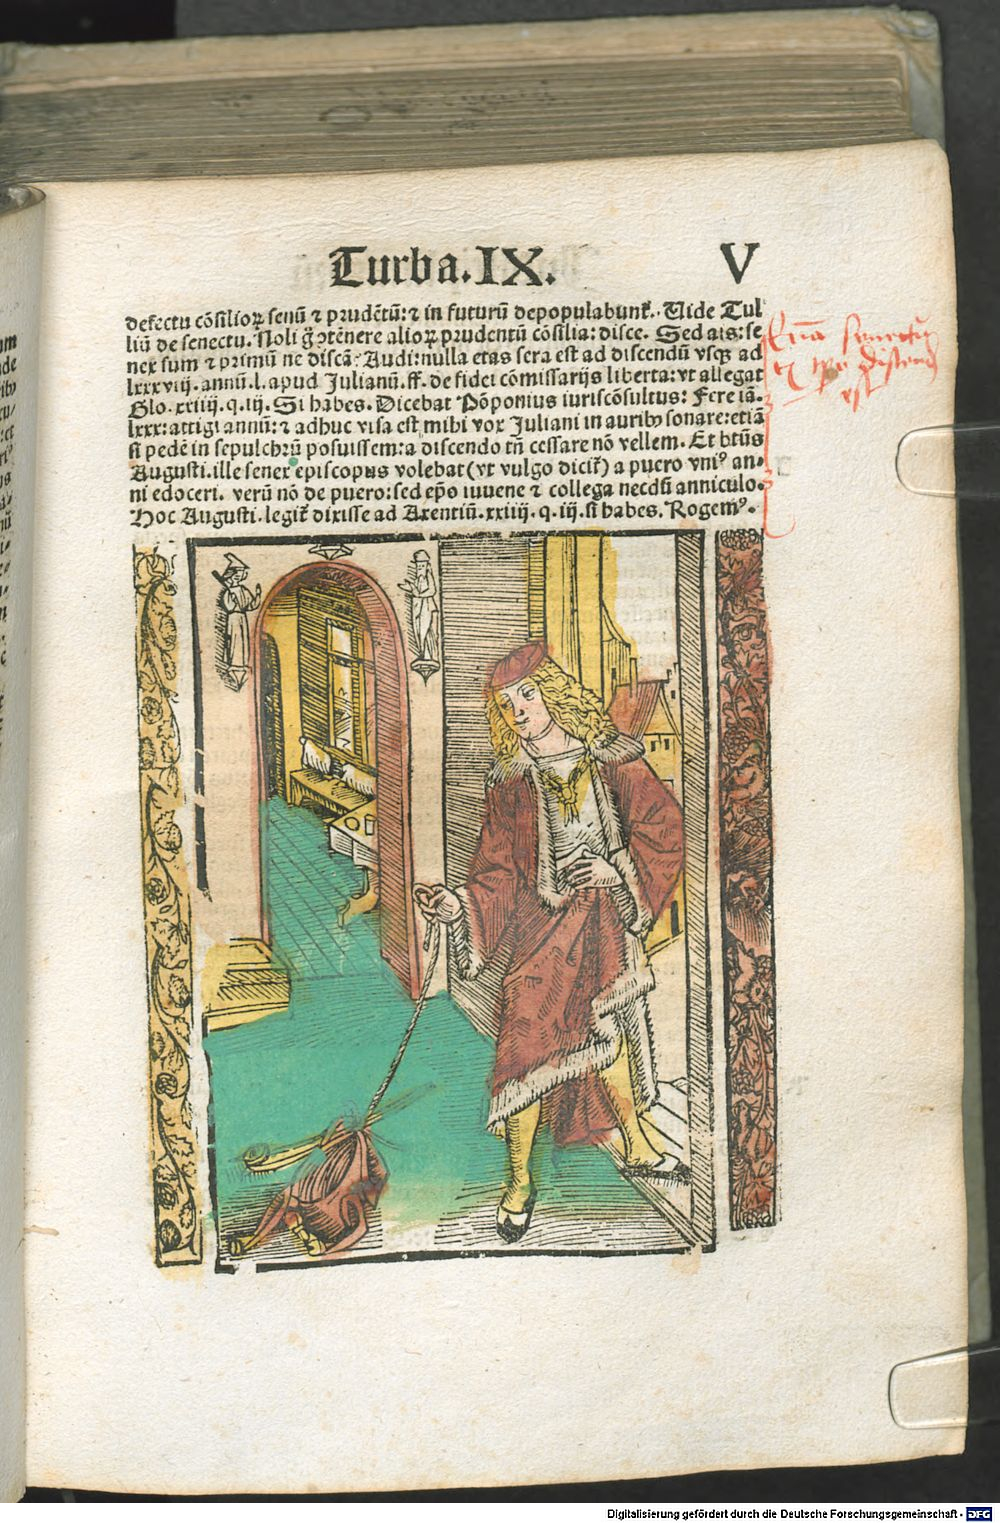 Turba.IX. V
defectu cōsilioꝝ senū ⁊ prudētū: ⁊ in futurū depopulabunt᷑. Vide Tul
liū de senectu. Noli g̊ ↄtēnere alioꝝ prudentū cōsilia: disce. Sed ais: se
nex sum ⁊ primū ne discā: Audi: nulla etas sera est ad discendū vsqꝫ ad
lxxxviij. annū. l. apud Julianū. ff. de fidei cōmissarijs liberta: vt allegat
Glo. xxiiij. q. iij. Si habes. Dicebat Pōponius iuriscōsultus: Fere iā.
lxxx: attigi annū: ⁊ adhuc visa est mihi vox Juliani in auribꝰ sonare: etiā
si pedē in sepulchrū posuissem: a discendo tn̄ cessare nō vellem. Et btūs
Augusti. ille senex episcopus volebat (vt vulgo dicit᷑) a puero vniꝰ an-
ni edoceri. verū nō de puero: sed ep̄o iuuene ⁊ collega necdū anniculo.
Hoc Augusti. legit᷑ dixisse ad Axentiū. xxiiij. q. iij. si habes. Rogemꝰ.
est
Digitalisierung gefördert durch die Deutsche Forschungsgemeinschaft - DFG